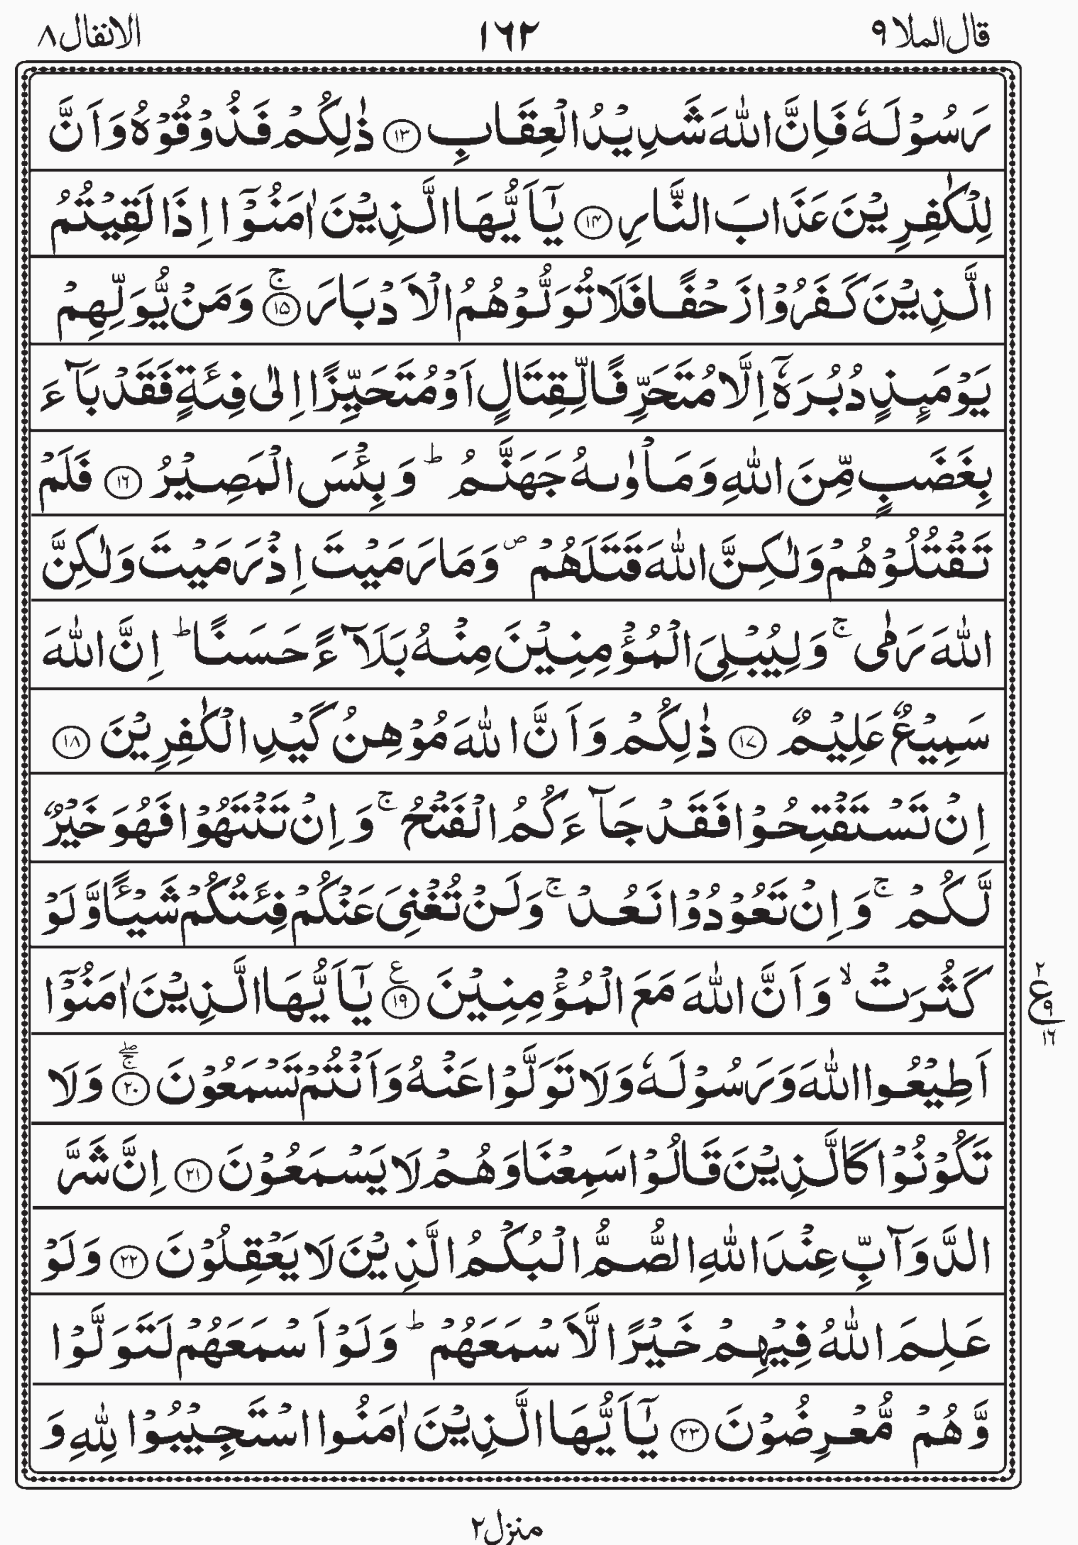 قال الملا ٩
١٦٢
الانفال ٨
رَسُوْلَهٗ فَاِنَّ اللّٰهَ شَدِيْدُ الْعِقَابِ ﴿١٣﴾ ذٰلِكُمْ فَذُوْقُوْهُ وَاَنَّ
لِلْكٰفِرِيْنَ عَذَابَ النَّارِ ﴿١٤﴾ يٰٓاَيُّهَا الَّذِيْنَ اٰمَنُوْٓا اِذَا لَقِيْتُمُ
الَّذِيْنَ كَفَرُوْا زَحْفًا فَلَا تُوَلُّوْهُمُ الْاَدْبَارَ ﴿١٥﴾ۚ وَمَنْ يُّوَلِّهِمْ
يَوْمَئِذٍ دُبُرَهٗٓ اِلَّا مُتَحَرِّفًا لِّقِتَالٍ اَوْ مُتَحَيِّزًا اِلٰى فِئَةٍ فَقَدْ بَآءَ
بِغَضَبٍ مِّنَ اللّٰهِ وَمَاْوٰىهُ جَهَنَّمُ ؕ وَبِئْسَ الْمَصِيْرُ ﴿١٦﴾ فَلَمْ
تَقْتُلُوْهُمْ وَلٰكِنَّ اللّٰهَ قَتَلَهُمْ ۪ وَمَا رَمَيْتَ اِذْ رَمَيْتَ وَلٰكِنَّ
اللّٰهَ رَمٰى ۚ وَلِيُبْلِيَ الْمُؤْمِنِيْنَ مِنْهُ بَلَآءً حَسَنًا ؕ اِنَّ اللّٰهَ
سَمِيْعٌ عَلِيْمٌ ﴿١٧﴾ ذٰلِكُمْ وَاَنَّ اللّٰهَ مُوْهِنُ كَيْدِ الْكٰفِرِيْنَ ﴿١٨﴾
اِنْ تَسْتَفْتِحُوْا فَقَدْ جَآءَكُمُ الْفَتْحُ ۚ وَاِنْ تَنْتَهُوْا فَهُوَ خَيْرٌ
لَّكُمْ ۚ وَاِنْ تَعُوْدُوْا نَعُدْ ۚ وَلَنْ تُغْنِيَ عَنْكُمْ فِئَتُكُمْ شَيْـًٔا وَّلَوْ
كَثُرَتْ ۙ وَاَنَّ اللّٰهَ مَعَ الْمُؤْمِنِيْنَ ﴿١٩﴾ع يٰٓاَيُّهَا الَّذِيْنَ اٰمَنُوْٓا
٢ ع ٩ ١٦
اَطِيْعُوا اللّٰهَ وَرَسُوْلَهٗ وَلَا تَوَلَّوْا عَنْهُ وَاَنْتُمْ تَسْمَعُوْنَ ﴿٢٠﴾ۖۚ وَلَا
تَكُوْنُوْا كَالَّذِيْنَ قَالُوْا سَمِعْنَا وَهُمْ لَا يَسْمَعُوْنَ ﴿٢١﴾ اِنَّ شَرَّ
الدَّوَآبِّ عِنْدَ اللّٰهِ الصُّمُّ الْبُكْمُ الَّذِيْنَ لَا يَعْقِلُوْنَ ﴿٢٢﴾ وَلَوْ
عَلِمَ اللّٰهُ فِيْهِمْ خَيْرًا لَّاَسْمَعَهُمْ ؕ وَلَوْ اَسْمَعَهُمْ لَتَوَلَّوْا
وَّهُمْ مُّعْرِضُوْنَ ﴿٢٣﴾ يٰٓاَيُّهَا الَّذِيْنَ اٰمَنُوا اسْتَجِيْبُوْا لِلّٰهِ وَ
منزل ٢